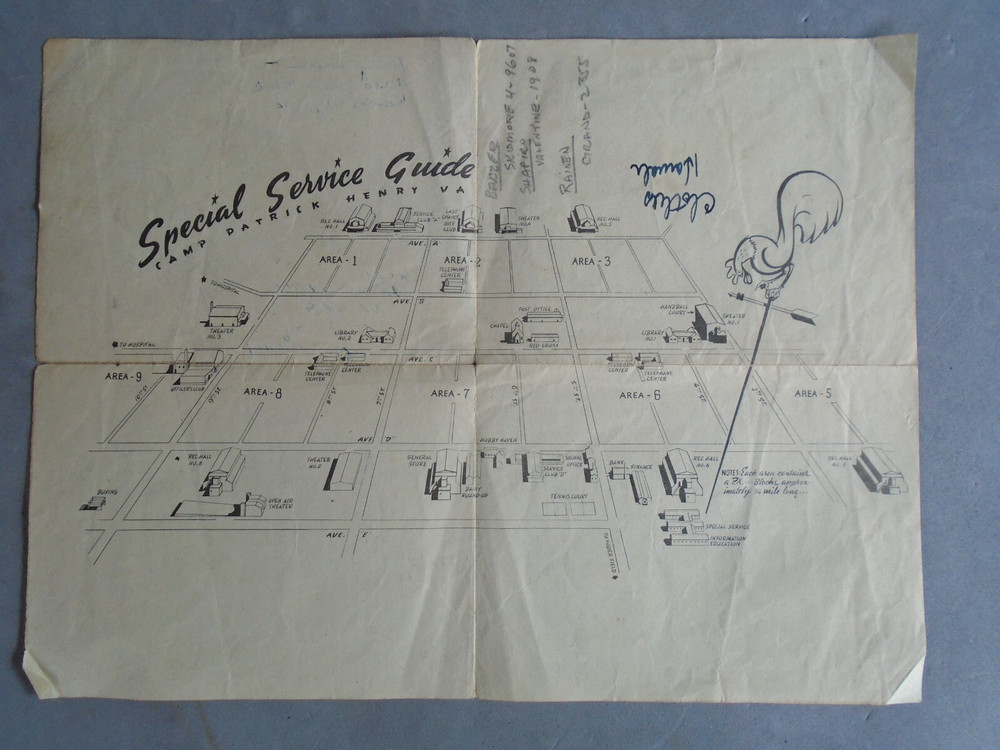 Special Service Guide
CAMP PATRICK HENRY VA
SKIDMORE 4-9607
SHAPIRO
VALENTINE-1908
RAINEN
GRAND-2355
Clothes
REC HALL NO. 1
SERVICE CLUB "A"
LAST CHANCE SERV. CLUB
THEATER NO. 4
REC HALL NO. 2
AVE. A
AREA-1
AREA-2
AREA-3
TELEPHONE CENTER
AVE. B
THEATER NO. 3
POST OFFICE
HANDBALL COURT
THEATER NO. 1
CHAPEL
RED CROSS
LIBRARY NO. 2
LIBRARY NO. 1
TO HOSPITAL
AVE. C
TELEPHONE CENTER
TELEPHONE CENTER
AREA-9
OFFICERS CLUB
AREA-8
AREA-7
AREA-6
AREA-5
10th ST.
9th ST.
8th ST.
7th ST.
AVE. "D"
HOBBY HAVEN
REC HALL NO. 8
THEATER NO. 2
GENERAL STORE
SERVICE CLUB "D"
SIGNAL OFFICE
BANK
FINANCE
REC HALL NO. 6
REC HALL NO. 5
DAIRY ROUND-UP
BOXING
OPEN AIR THEATER
TENNIS COURT
NOTE: Each area contains
a P.X. - Blocks approx-
imately ¼ mile long...
SPECIAL SERVICE
INFORMATION EDUCATION
AVE. "E"